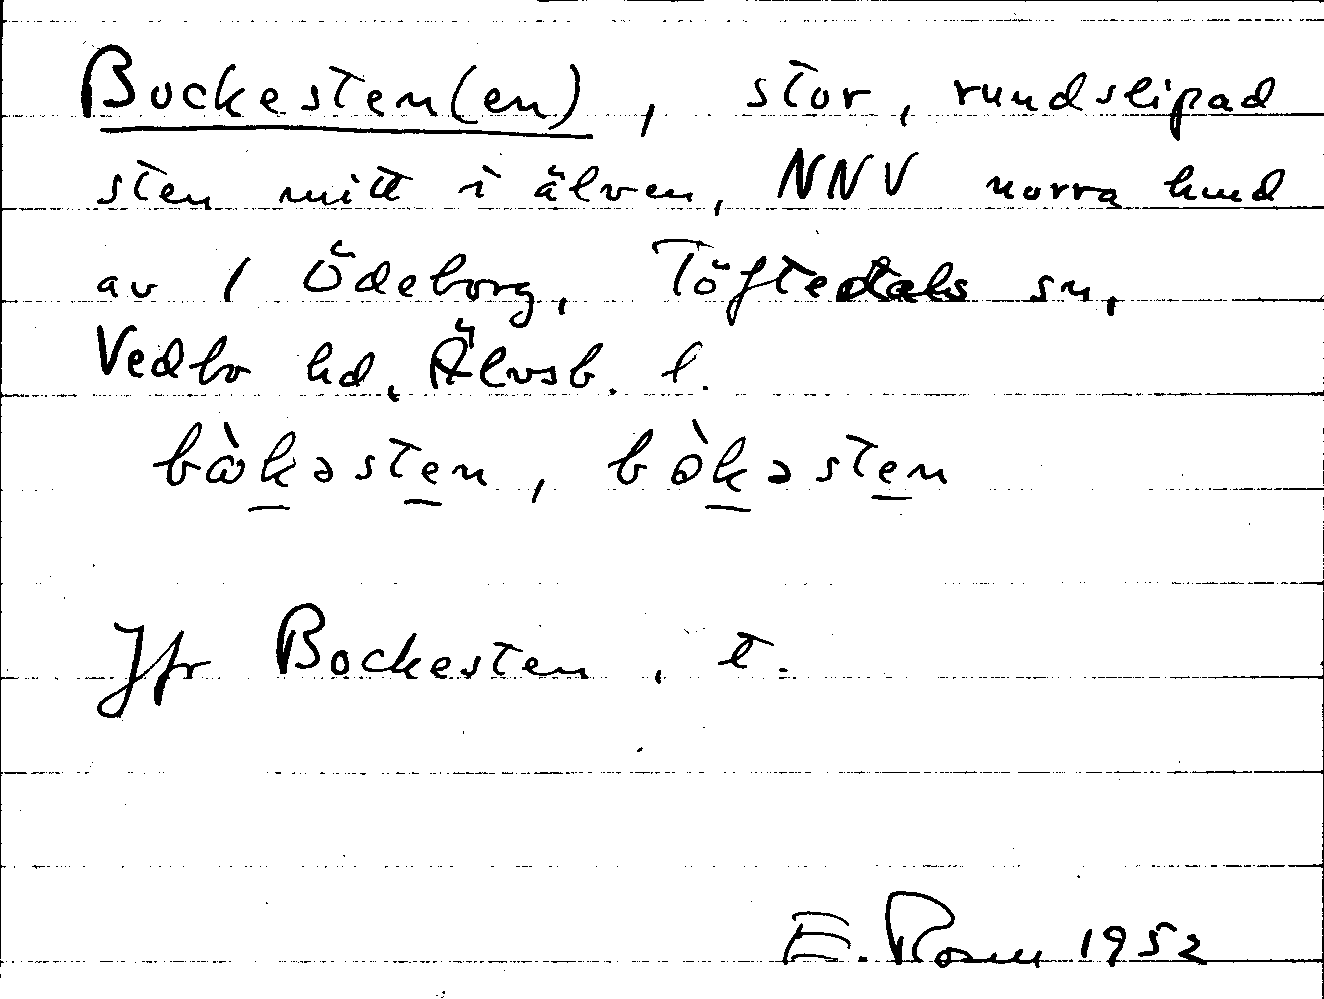 Bockesten(en), stor, rundslipad
sten mitt i älven, NNV norra hmd
av 1 Ödeborg, Töftedals sn,
Vedbo hd, Älvsb. l.
bòkəsten, bòkəsten
Jfr Bockesten, t.
E. Rosen 1952